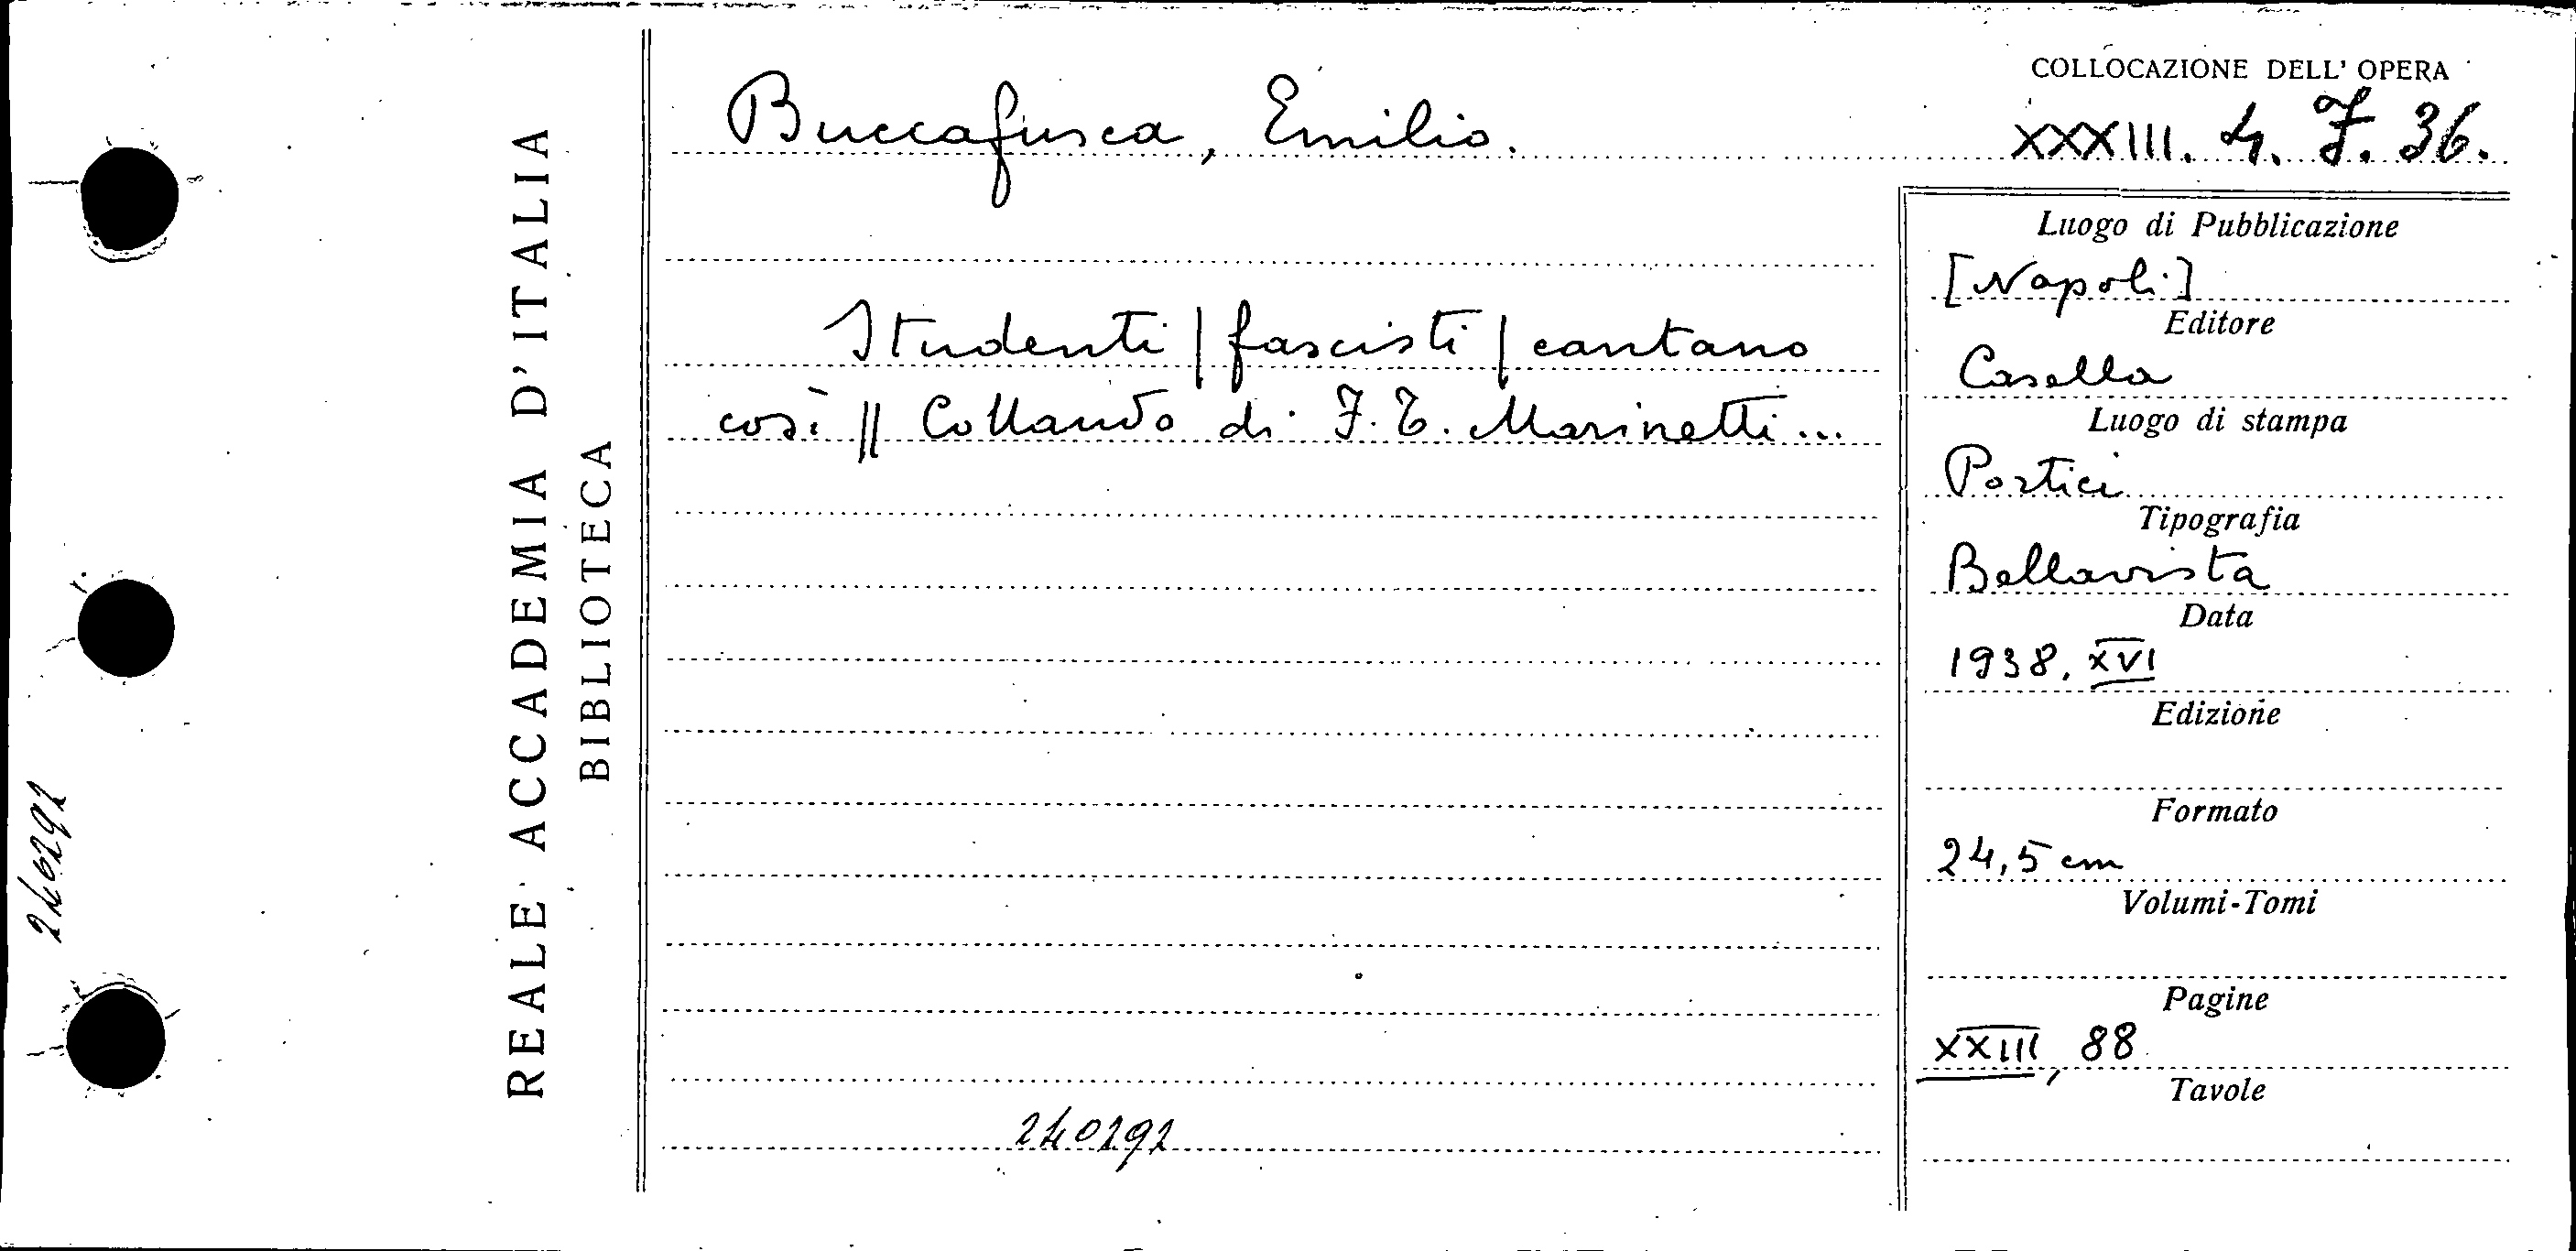 COLLOCAZIONE DELL' OPERA
Buccafusca, Emilio.
XXXIII. 4. F. 36.
Studenti | fascisti | cantano
così || Collaudo di F. T. Marinetti...
Luogo di Pubblicazione
[Napoli]
Editore
Casella
Luogo di stampa
Portici
Tipografia
Bellavista
Data
1938, XVI
Edizione
Formato
24,5 cm
Volumi-Tomi
Pagine
XXIII, 88
Tavole
240292
REALE ACCADEMIA D'ITALIA
BIBLIOTECA
240292